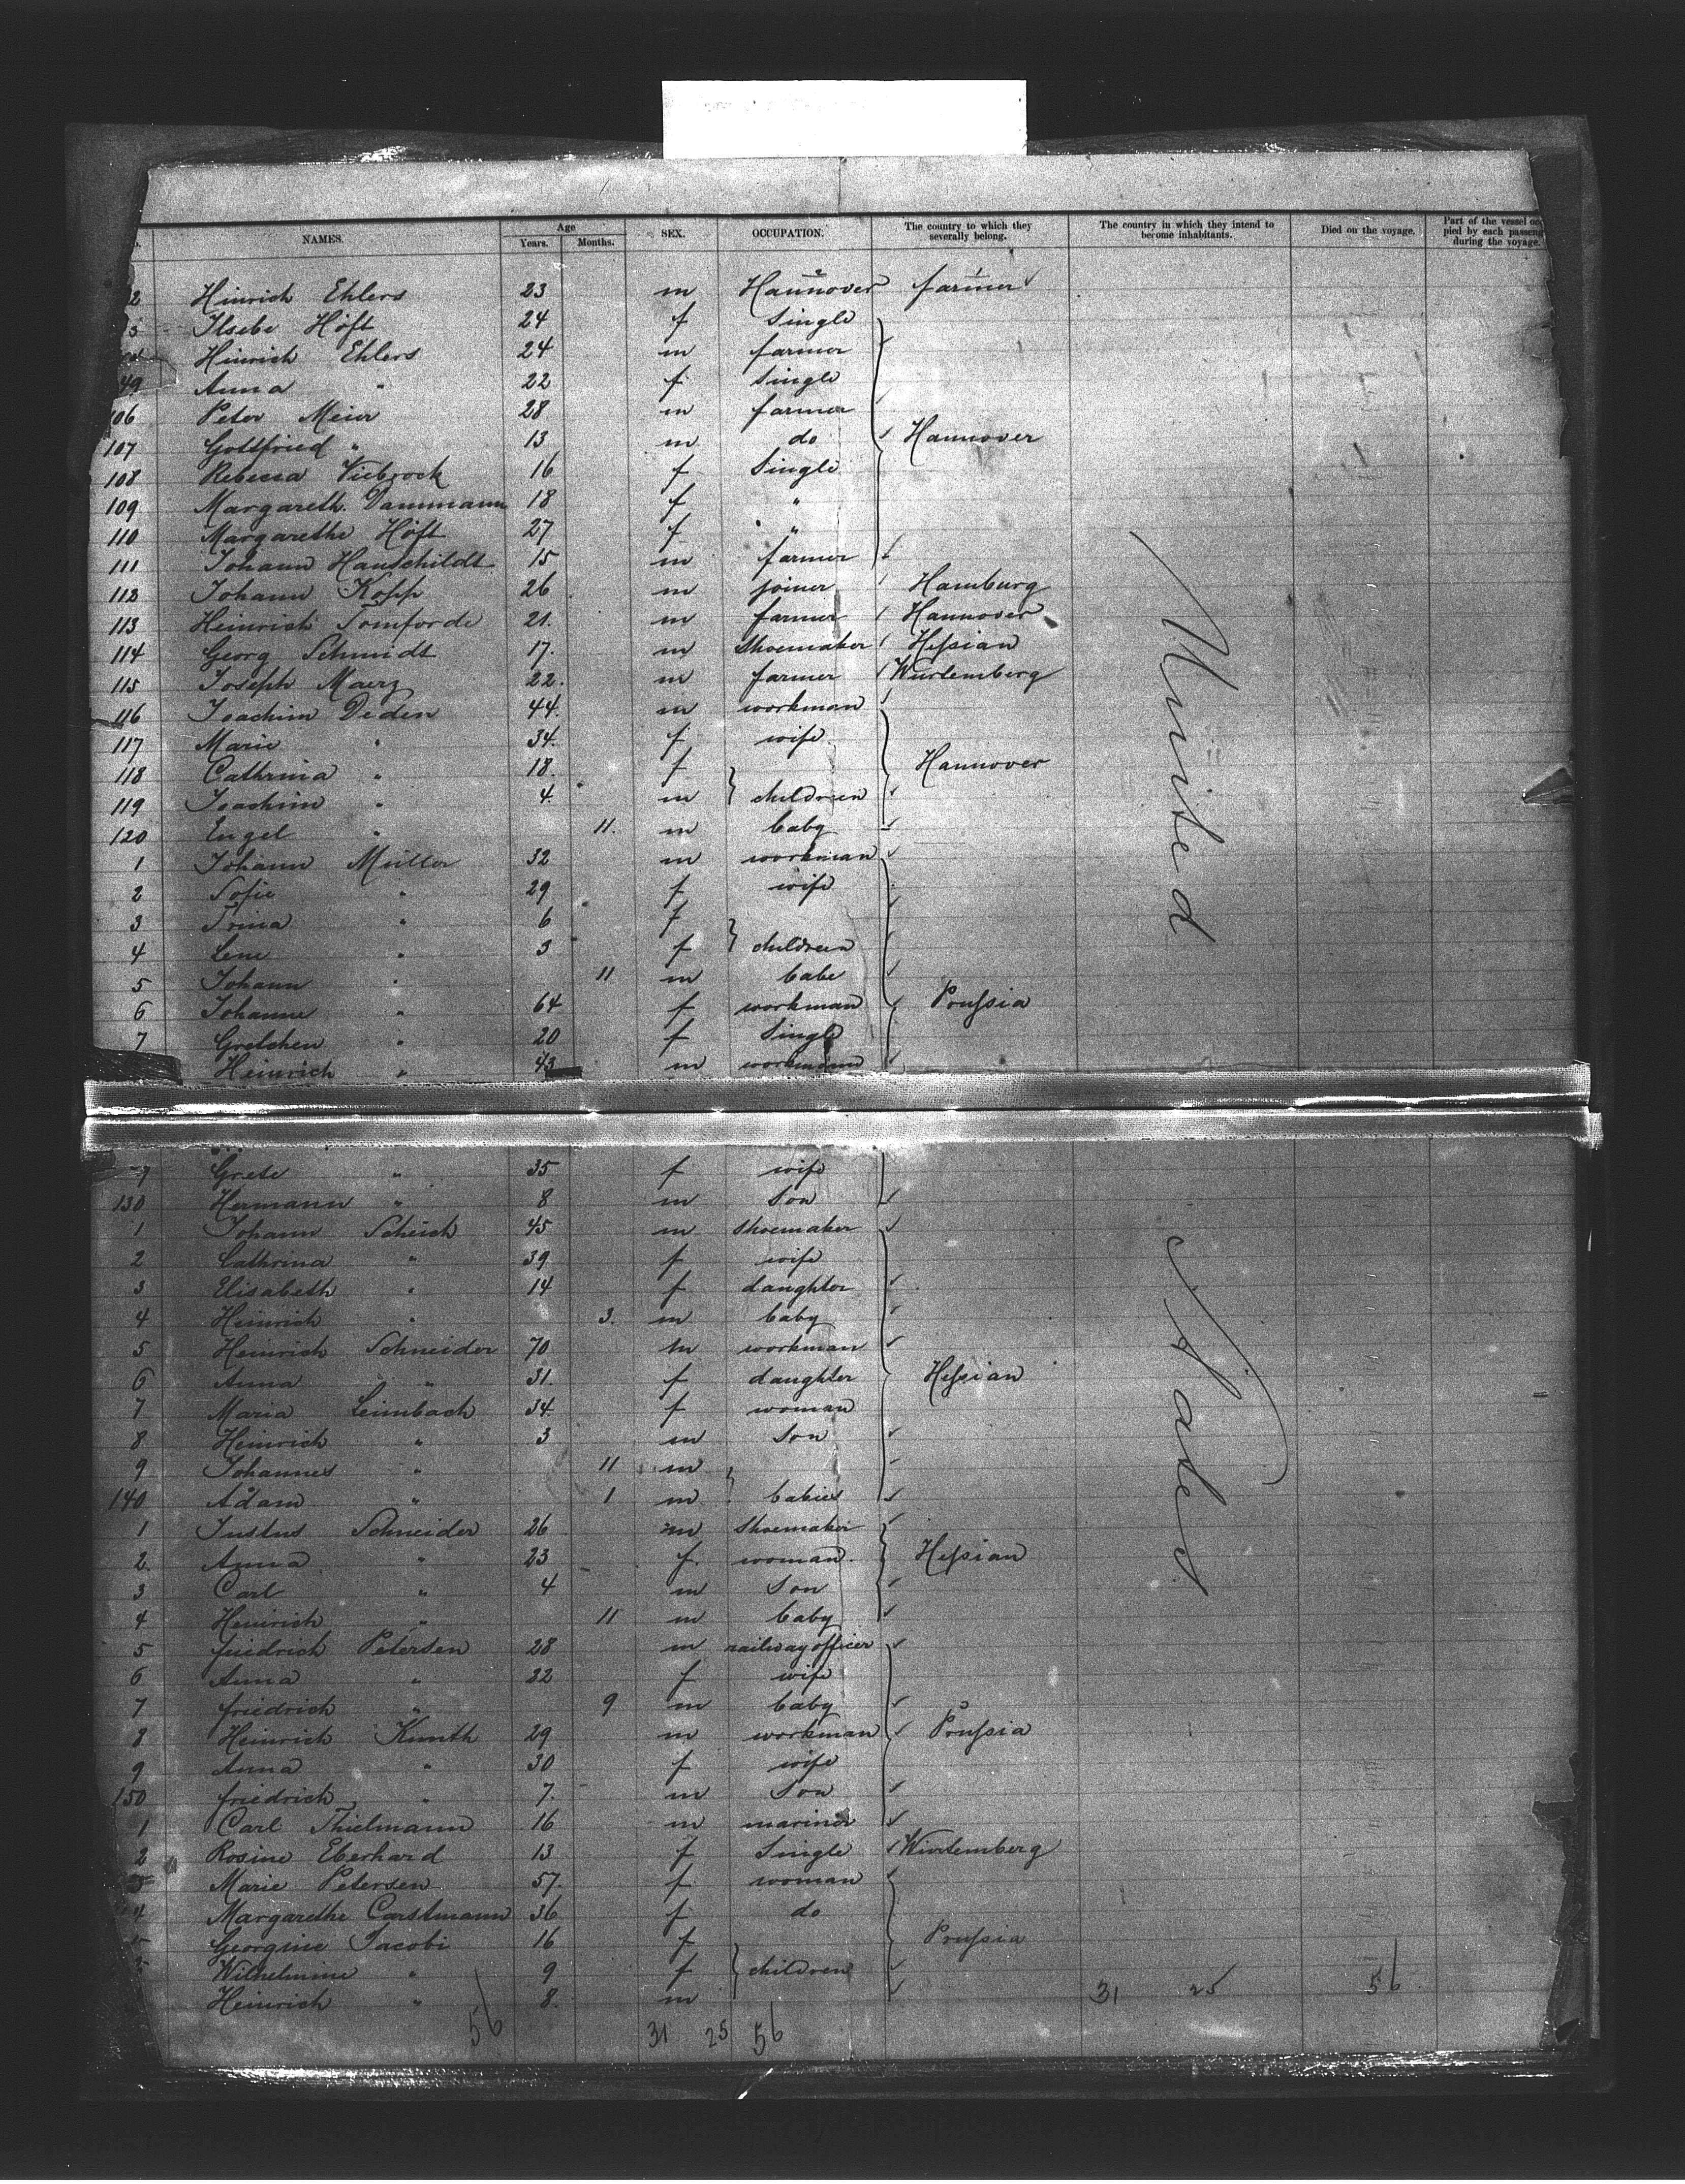 NAMES. Age Years. Months. SEX. OCCUPATION. The country to which they severally belong. The country in which they intend to become inhabitants. Died on the voyage. Part of the vessel occ pied by each passeng during the voyage.
2 Hinrich Ehlers 23 m Hannover farmer
Ilsebe Höft 24 f Single
Hinrich Ehlers 24 m farmer
Anna " 22 f Single
106 Peter Meier 28 m farmer
107 Gottfried " 13 m do Hannover
108 Rebecca Viebrock 16 f Single
109 Margareth. Dammann 18 f "
110 Margarethe Höft 27 f "
111 Johann Hauschildt 15 m farmer
112 Johann Kopp 26 m joiner Hamburg
113 Heinrich Tomforde 21. m farmer Hannover
114 Georg Schmidt 17. m Shoemaker Hessian
115 Joseph Maerz 22. m farmer Würtemberg
116 Joachim Deden 44. m workman
117 Marie " 34. f wife
118 Cathrina " 18. f Hannover
119 Joachim " 4. m children
120 Engel " 11. m baby
1 Johann Müller 32 m workman
2 Sofie " 29 f wife
3 Trina " 6 f
4 Lene " 3 f children
5 Johann " 11 m babe
6 Johanne " 64 f workman Prussia
7 Gretchen " 20 f Single
Heinrich " 43 m workmann
9 Grete " 35 f wife
130 Hermann " 8 m Son
1 Johann Scheich 45 m Shoemaker
2 Cathrina " 39 f wife
3 Elisabeth " 14 f daughter
4 Heinrich " 3. m baby
5 Heinrich Schneider 70 m workman
6 Anna " 31. f daughter Hessian
7 Maria Leimbach 34. f woman
8 Heinrich " 3 m Son
9 Johannes " 11 m
140 Adam " 1 m babies
1 Justus Schneider 26 m Shoemaker
2. Anna " 23 f. woman. Hessian
3 Carl " 4 m Son
4 Heinrich " 11 m baby
5 friedrich Petersen 28 m railway officer
6 Anna " 32 f wife
7 friedrich " 9 m baby
8 Heinrich Kunth 29 m workman Prussia
9 Anna " 30 f wife
150 friedrich " 7. m Son
1 Carl Thielmann 16 m mariner
2 Rosine Eberhard 13 f Single Würtemberg
3 Marie Petersen 57. f woman
4 Margarethe Carstmann 36 f do
Georgine Jacobi 16 f Prussia
Wilhelmine " 9 f children
Heinrich " 8. m 31 25 56
56 31 25 56
United
States